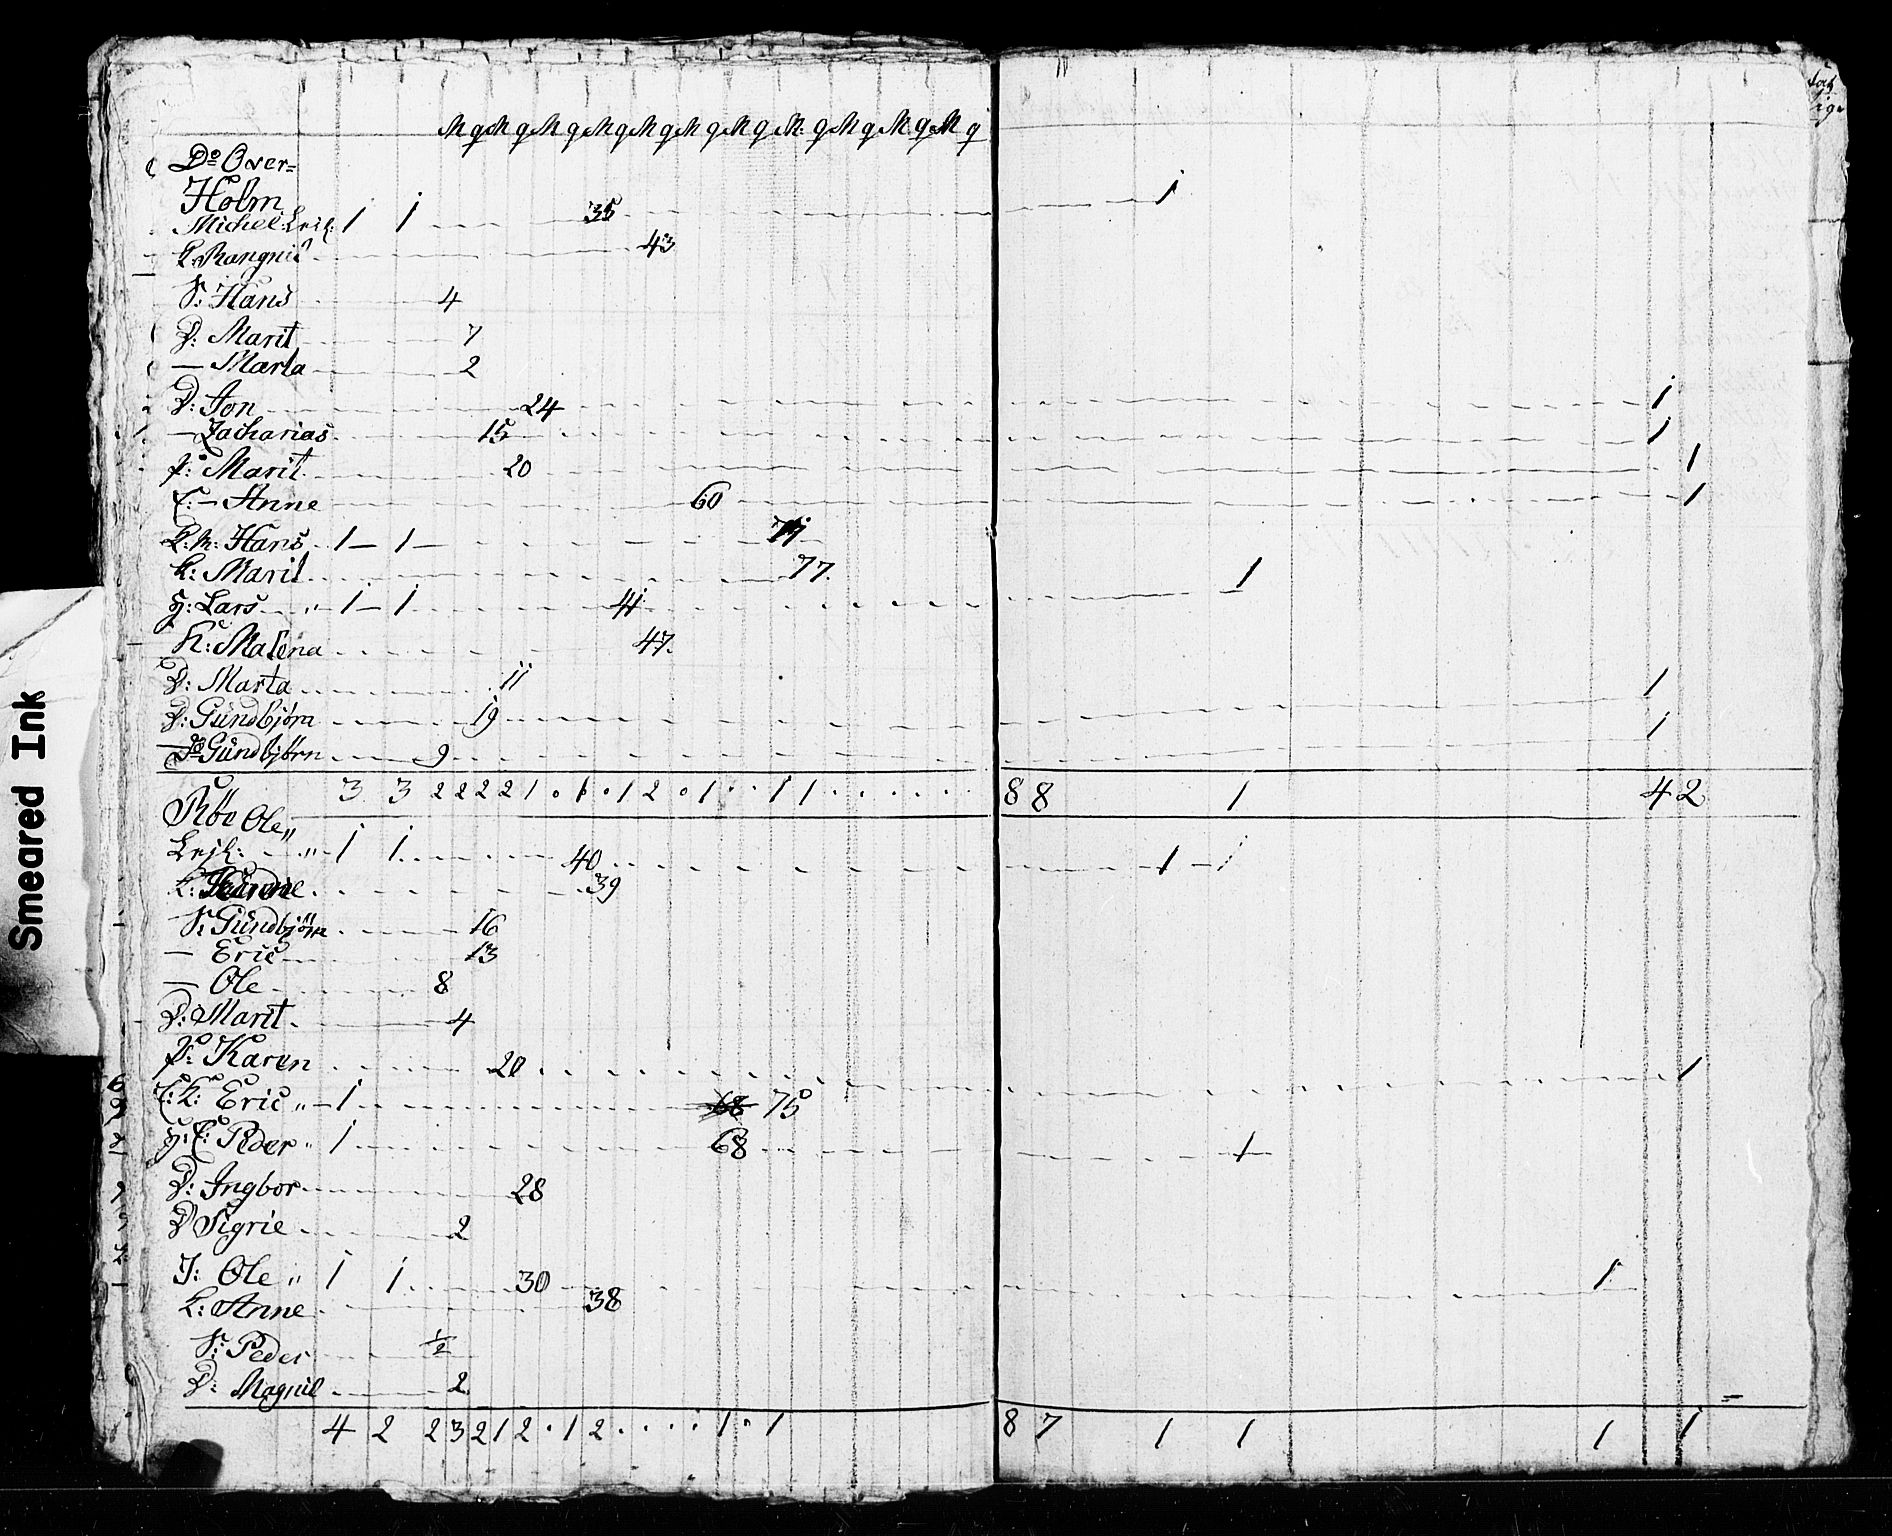 M q M q M q M q M q M q M q M: q M q M q M q
Do Over=
Holm
Michel Leil: 1 1 35 1
K. Rangnil 43
S: Hans 4
D: Marit 7
— Marta 2
D: Jon 24 1
— Zacharias 15 1
P: Marit 20 1
E: — Anne 60 1
K: M: Hans 1 — 1 —
K: Marit 77. 1
H: Lars „ 1 — 1 41
K: Malena 47.
D: Marta 11 1
D: Gündbjörn 19 1
Do Gündbjörn 9
3 3 2 2 2 2 1 . 1 . 1 2 . 1 . . 1 1 . . . . . . 8 8 1 4 2
Röe Ole „
Lejl: „ 1 1 40 1 — 1
K: 39
S: Gündbjörn 16
— Eric 13
— Ole 8
D: Marit 4
P: Karen 20 1
E: K: Eric „ — 1 68 75
H: E: Peder „ 1 68 1
D: Ingbor 28
D Sigrie 2
I: Ole „ 1 1 30 1
K: Anne 38
S: Peder 1/2
D: Magnil 2
4 2 2 3 2 1 2 . 1 2 . . . . 1 . 1 8 7 1 1 1 1
Smeared Ink